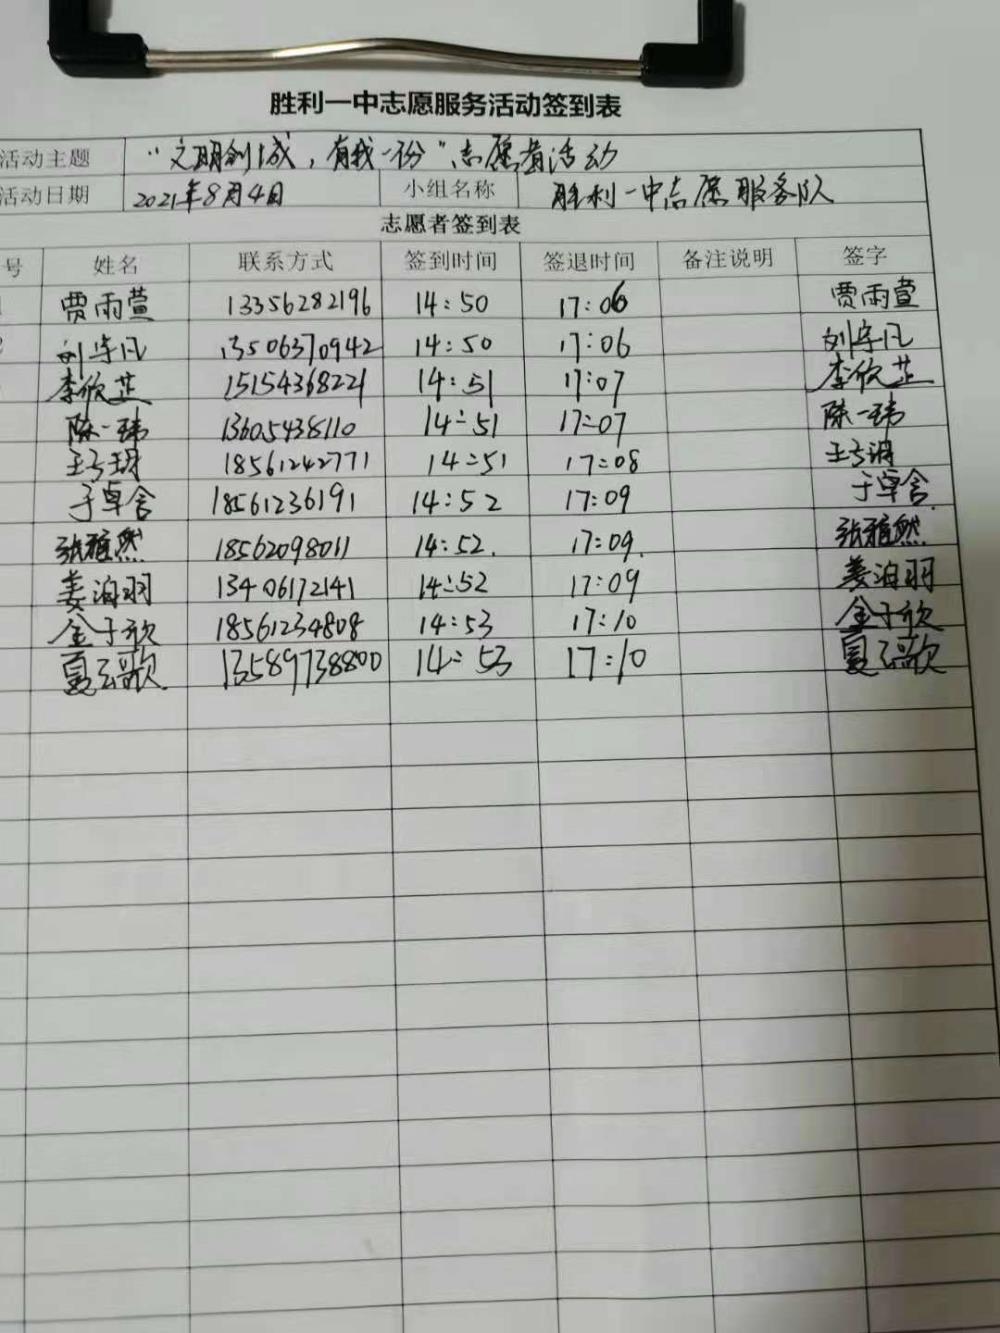 胜利一中志愿服务活动签到表
活动主题 "文明创城，有我一份"志愿者活动
活动日期 2021年8月4日 小组名称 胜利一中志愿服务队
志愿者签到表
号 姓名 联系方式 签到时间 签退时间 备注说明 签字
贾雨萱 13356282196 14:50 17:06 贾雨萱
刘宇凡 13506370942 14:50 17:06 刘宇凡
李欣芷 15154368221 14:51 17:07 李欣芷
陈一玮 13605438110 14:51 17:07 陈一玮
18561242771 14:51 17:08
于卓含 18561236191 14:52 17:09 于卓含
张雅然 18562098011 14:52. 17:09. 张雅然
姜泊羽 13406172141 14:52 17:09 姜泊羽
金子欣 18561234808 14:53 17:10 金子欣
夏云歌 13589738800 14:53 17:10 夏云歌